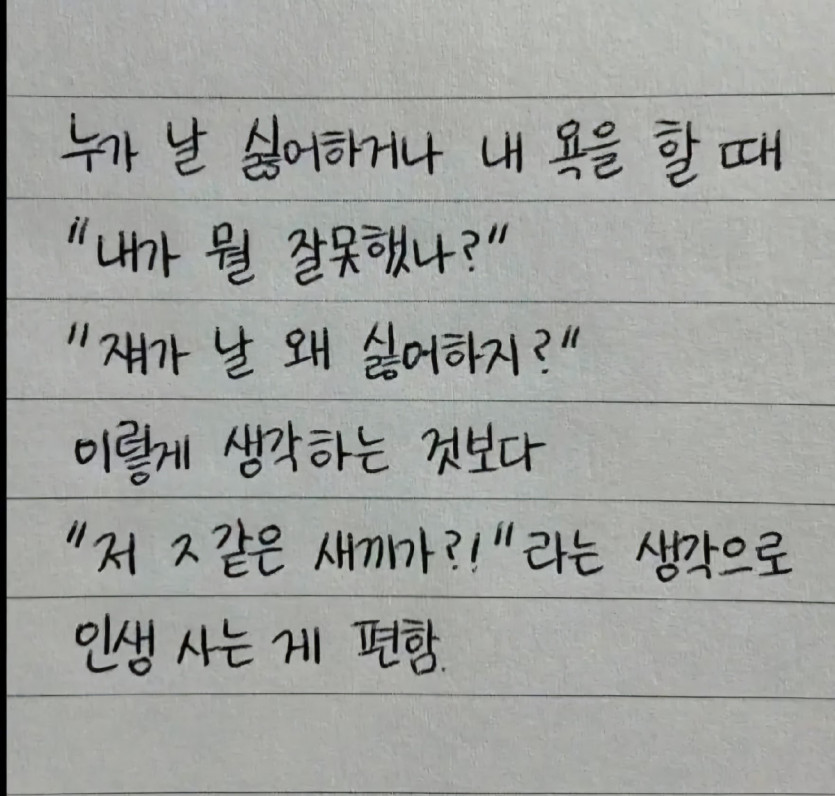 누가 날 싫어하거나 내 욕을 할 때
"내가 뭘 잘못했나?"
"쟤가 날 왜 싫어하지?"
이렇게 생각하는 것보다
"저 ㅈ같은 새끼가?!"라는 생각으로
인생 사는 게 편함.